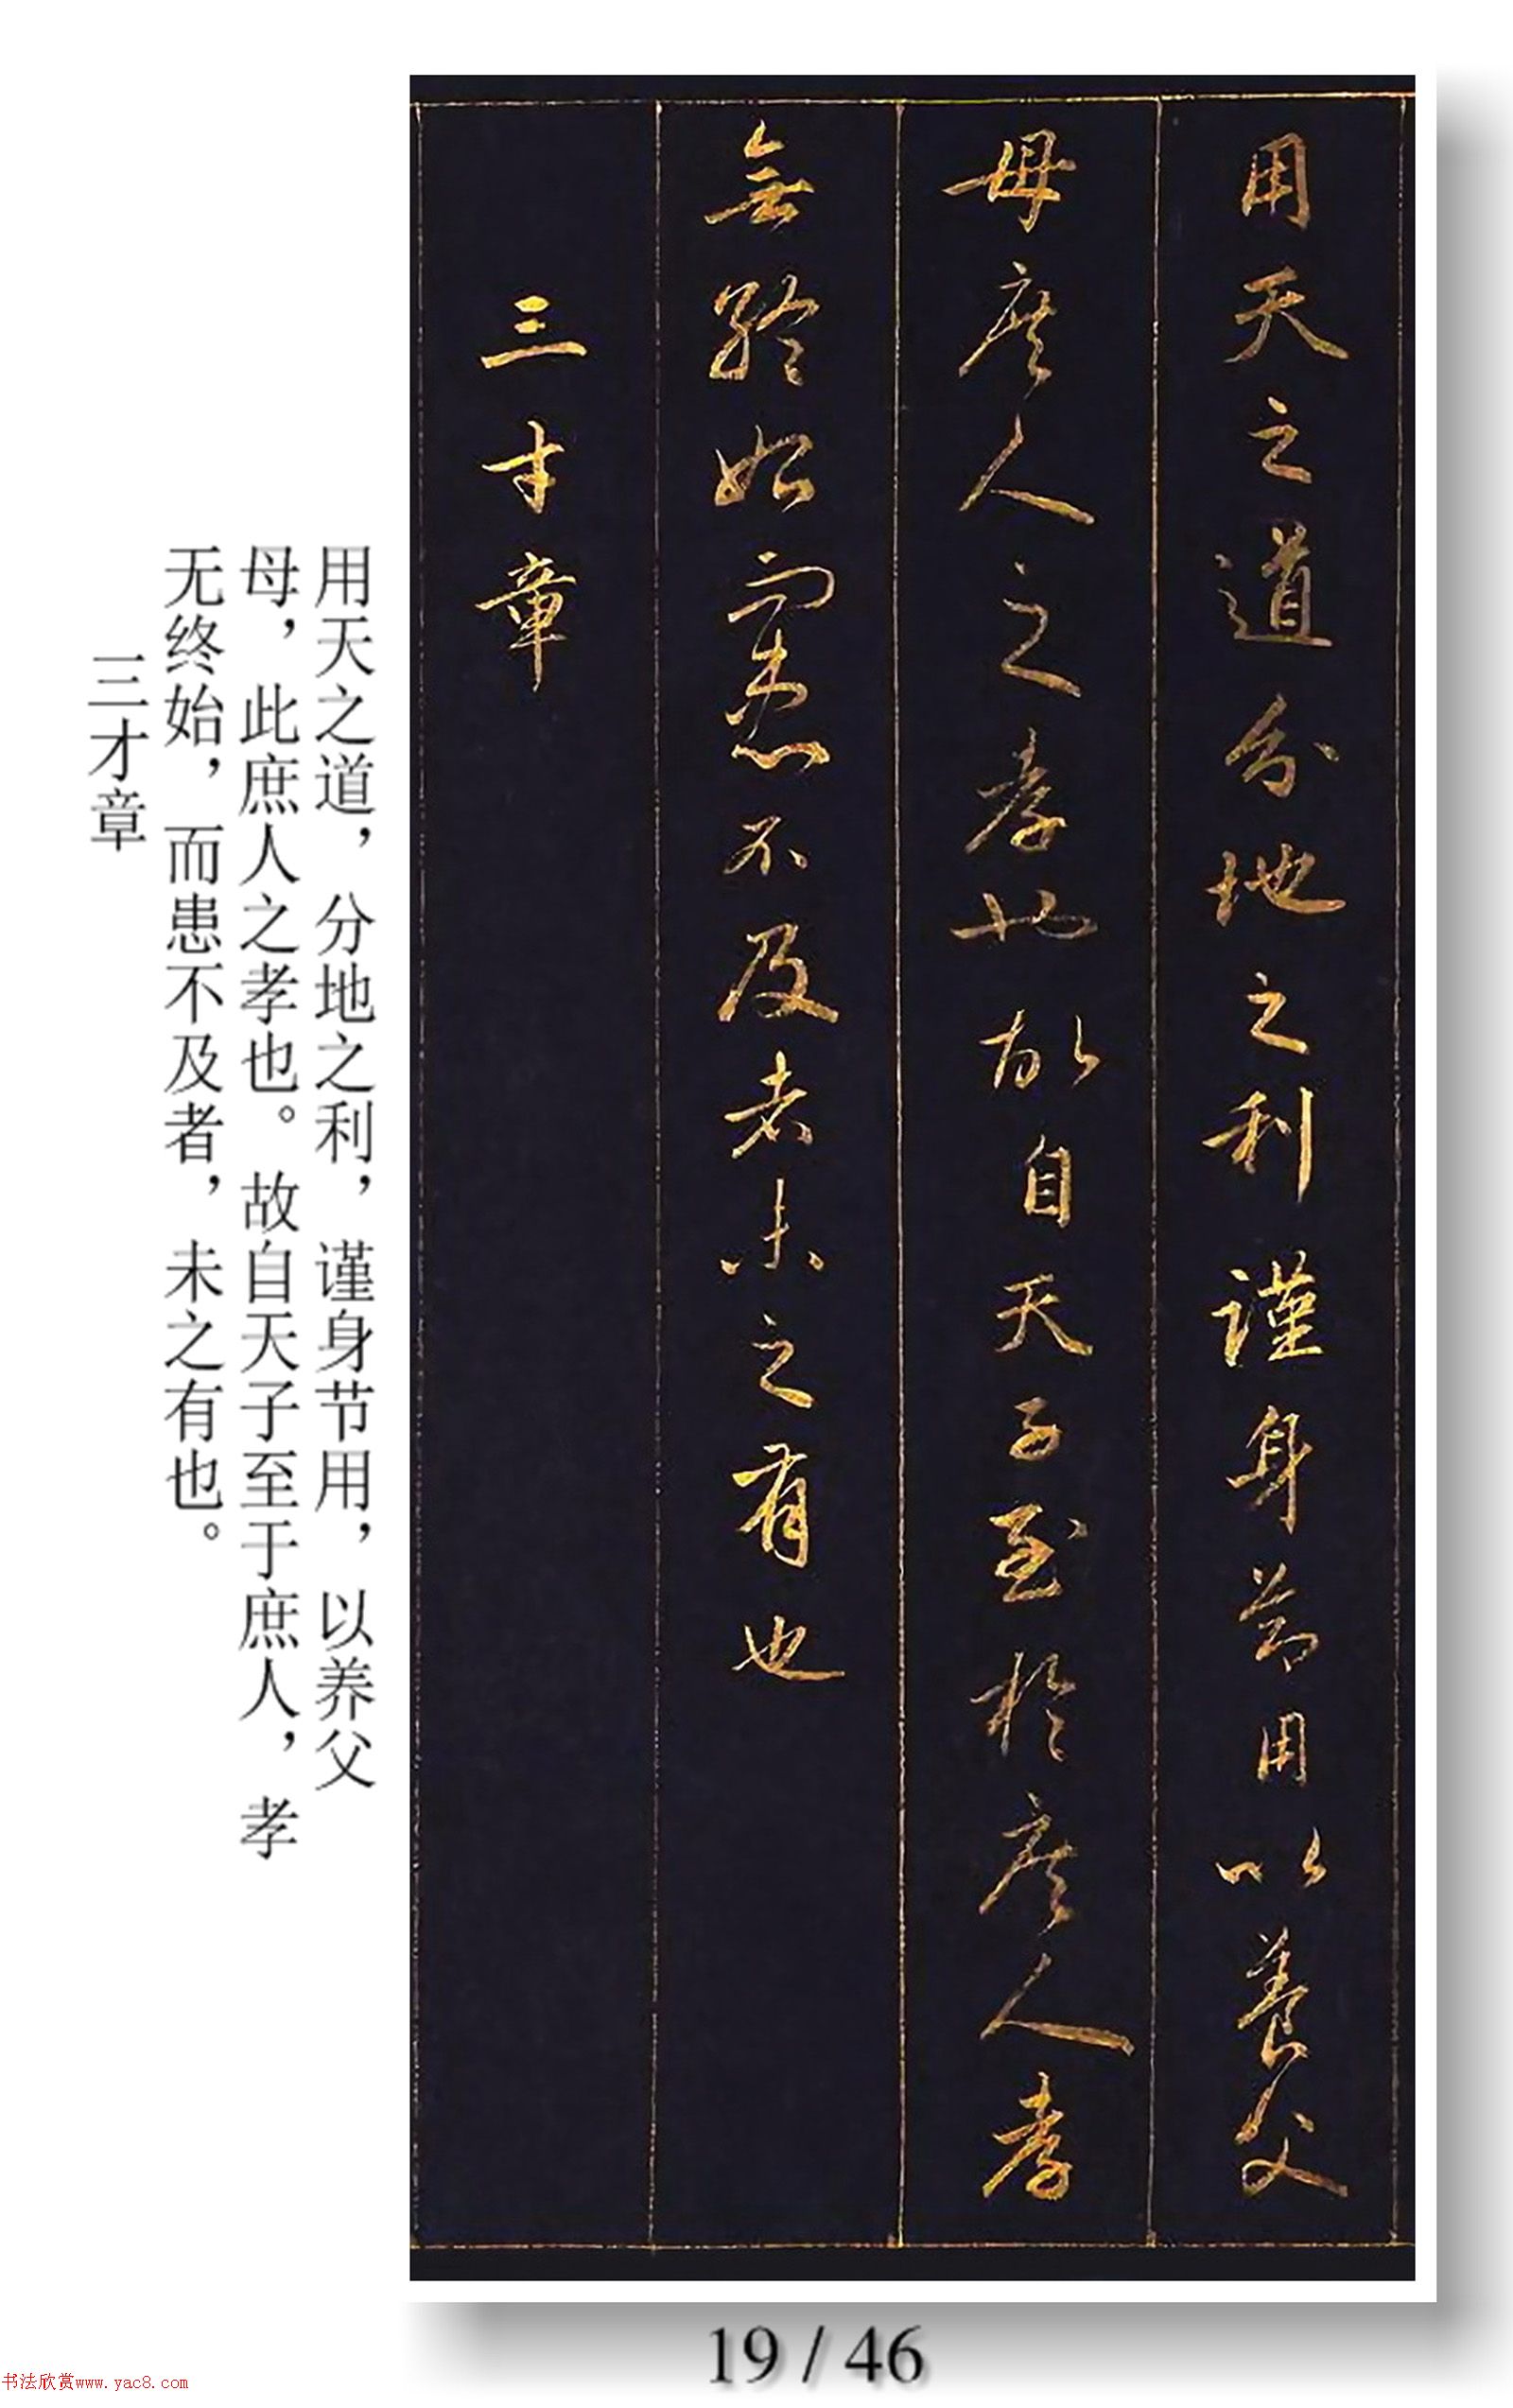 用天之道分地之利謹身節用以養父
母庶人之孝也故自天子至於庶人孝
無終始而患不及者未之有也
三才章
用天之道，分地之利，谨身节用，以养父
母，此庶人之孝也。故自天子至于庶人，孝
无终始，而患不及者，未之有也。
三才章
19 / 46
书法欣赏www.yac8.com